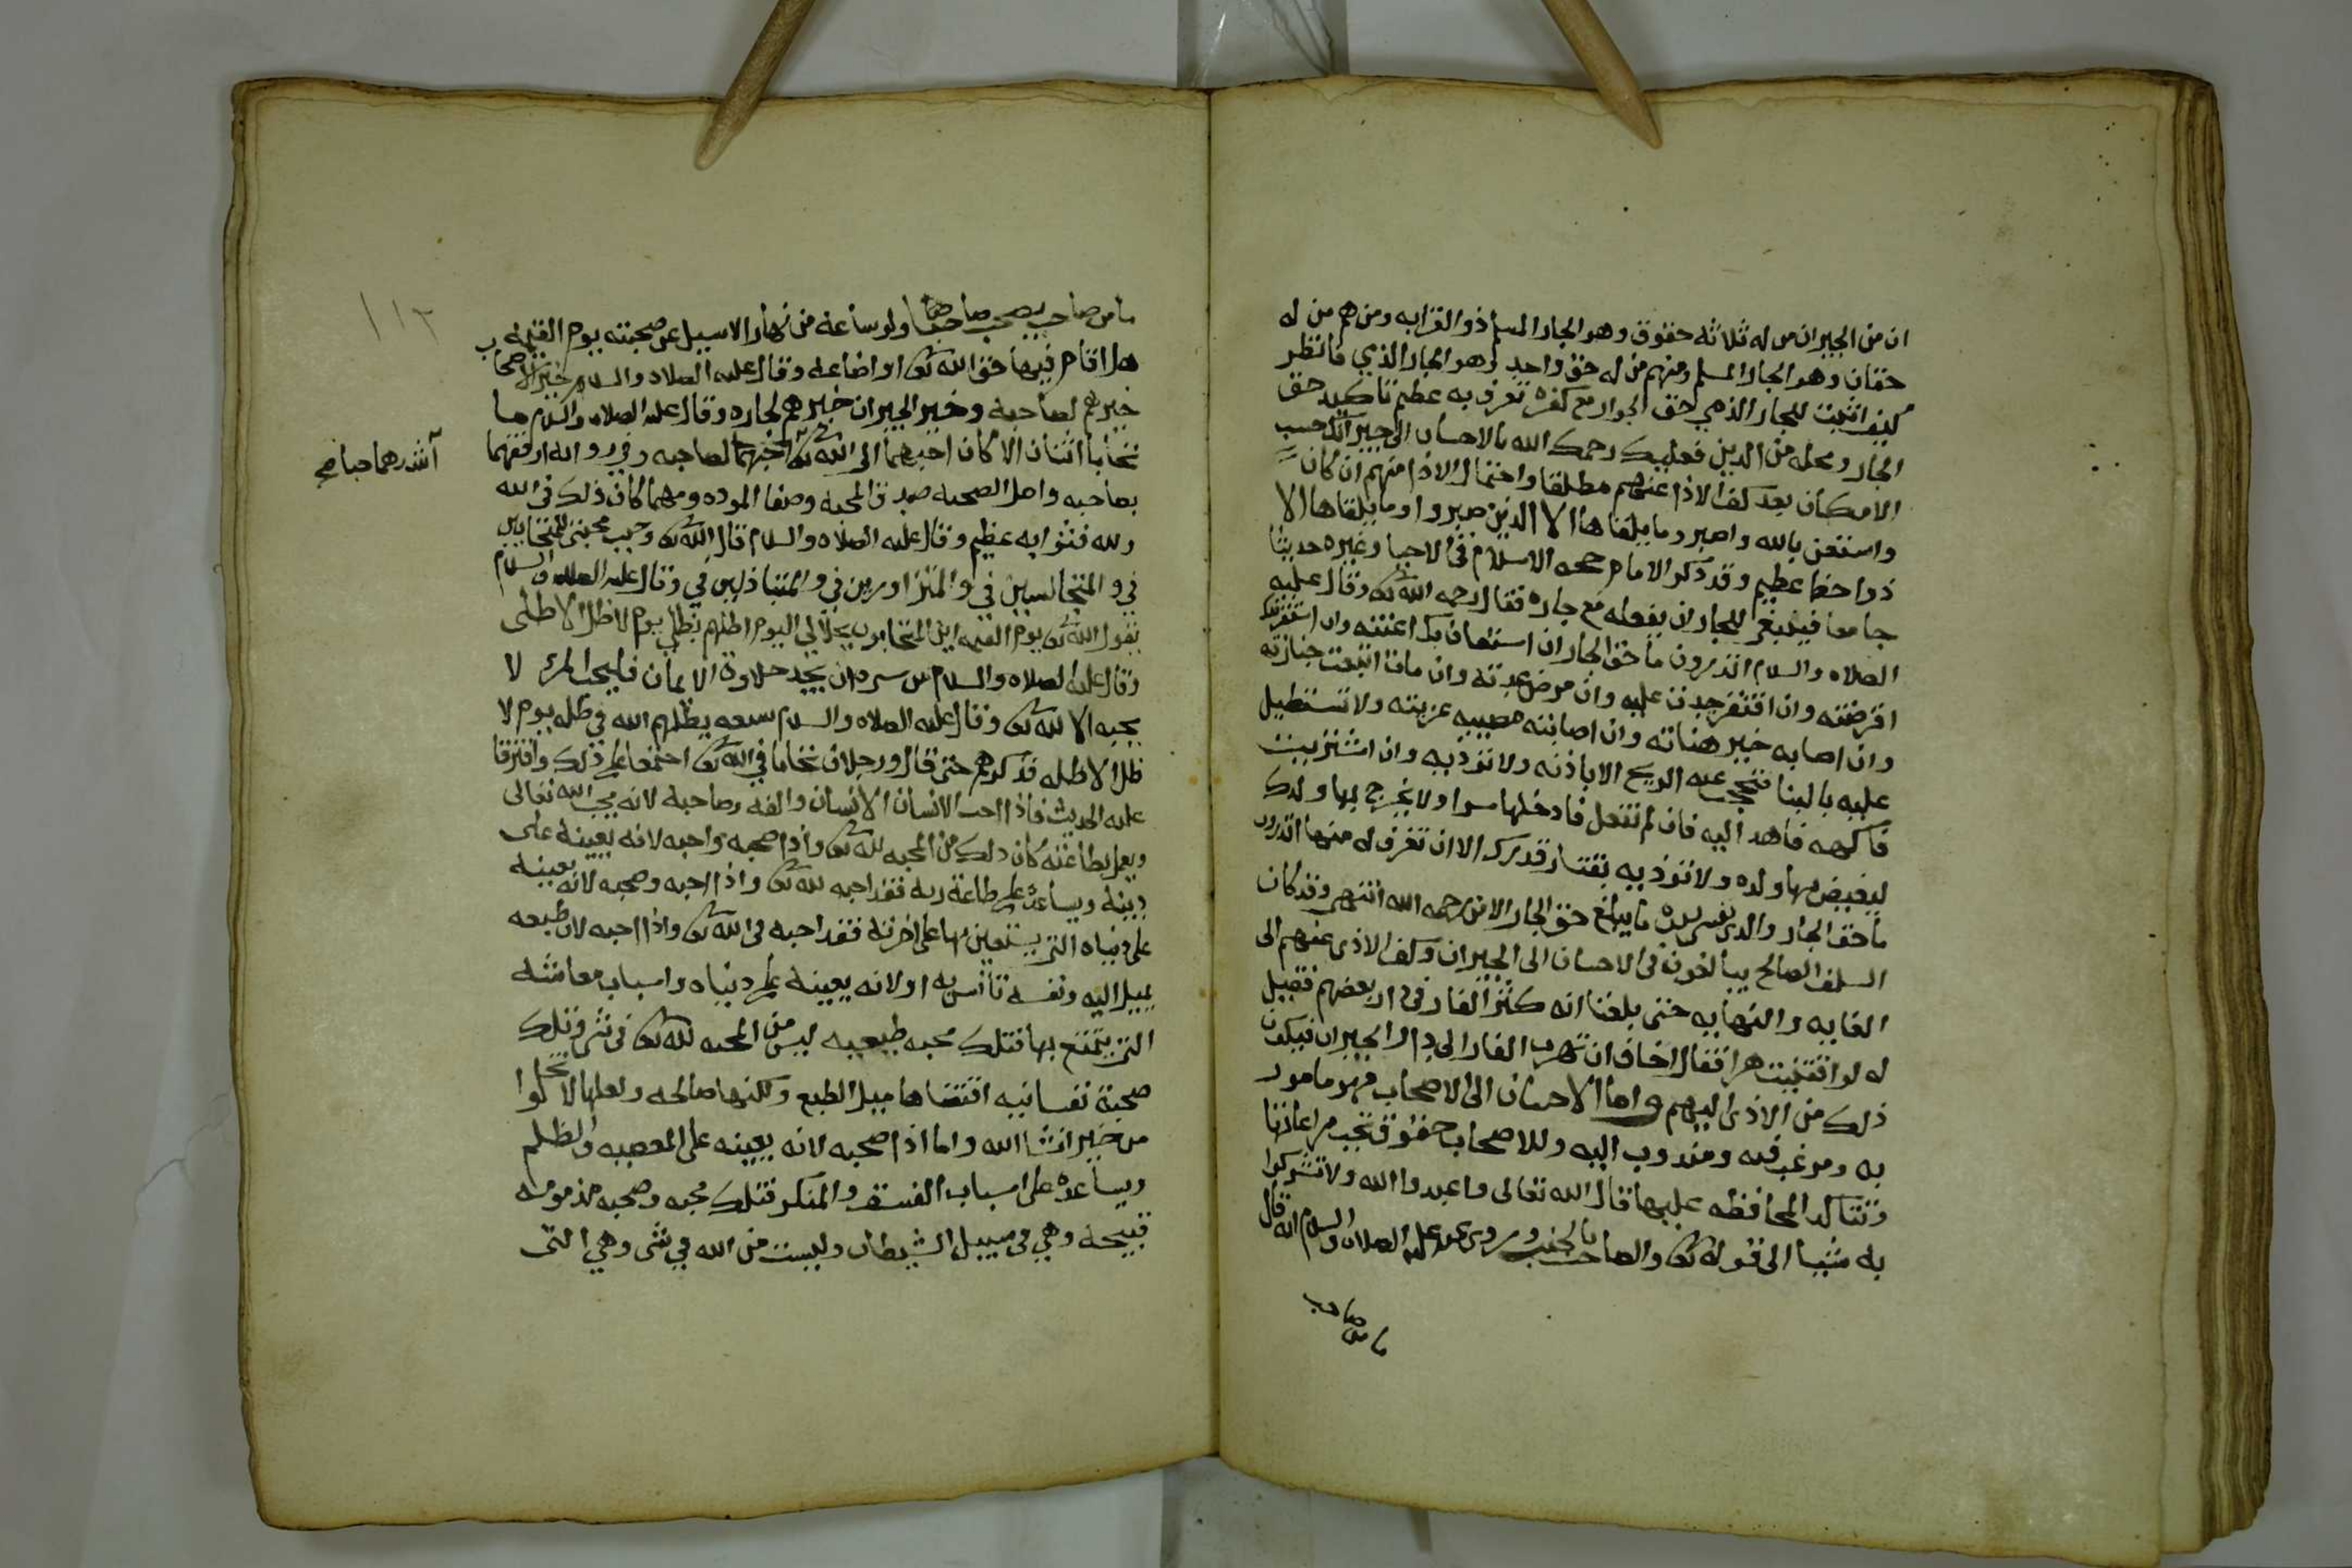 ان من الجيران من له ثلاثه حقوق وهو الجار المسلم ذو القرابه ومنهم من له
حقان وهو الجار المسلم ومنهم من له حق واحد وهو الجار الذمي فانظر
كيف اثبت للجار الذمي حق الجوار مع كفره تعرف به عظم تاكيد حق
الجار ومحله من الدين فعليك رحمك الله بالاحسان الى جيرانك حسب
الامكان بعد كف الاذا عنهم مطلقا واحتمال الاذا منهم ان كان
واستعن بالله واصبر وما يلقاها الا الذين صبروا وما يلقاها الا
ذوا حظ عظيم وقد ذكر الامام حجه الاسلام في الاحيا وغيره حديثا
جامعا فيما ينبغي للجار ان يفعله مع جاره فقال رحمه الله تعالى وقال عليه
الصلاه والسلام اتدرون ما حق الجار ان استعان بك اعنته وان استقرضك
اقرضته وان افتقر جدت عليه وان مرض عدته وان مات اتبعت جنازته
وان اصابه خير هناته وان اصابته مصيبه عزيته ولا تستطيل
عليه بالبنا فتحجب عنه الريح الا باذنه ولا توذيه وان اشتريت
فاكهه فاهد اليه فان لم تفعل فادخلها سرا ولا يخرج بها ولدك
ليغيض بها ولده ولا توذيه بقتار قدرك الا ان تغرف له منها اتدرون
ما حق الجار والذي نفسي بيده ما يبلغ حق الجار الا من رحمه الله انتهى وقد كان
السلف الصالح يبالغون في الاحسان الى الجيران وكف الاذى عنهم الى
الغايه والنهايه حتى بلغنا انه كثر الفار في دار بعضهم فقيل
له لو اقتنيت هرا فقال اخاف ان تهرب الفار الى دار الجيران فيكون
ذلك من الاذى اليهم واما الاحسان الى الاصحاب فهو مامور
به ومرغب فيه ومندوب اليه وللاصحاب حقوق تجب مراعاتها
وتتاكد المحافظه عليها قال الله تعالى واعبدوا الله ولا تشركوا
به شيئا الى قوله تعالى والصاحب بالجنب وروى عنه عليه الصلاه والسلام انه قال
ما من صاحب
١١٢
ما من صاحب يصحب صاحبا ولو ساعة من نهار الا سيل عن صحبته يوم القيمه
هل اقام فيها حق الله تعالى او اضاعه وقال عليه الصلاه والسلام خير الاصحاب
خيرهم لصاحبه وخير الجيران خيرهم لجاره وقال عليه الصلاه والسلام ما
تحابا اثنان الا كان احبهما الى الله تعالى لصاحبه وفي روايه ارفقهما
أشدهما حبا صح
بصاحبه واصل الصحبه صدق المحبه وصفا الموده ومهما كان ذلك في الله
ولله فثوابه عظيم وقال عليه الصلاه والسلام قال الله تعالى وجبت محبتي للمتحابين
في والمتجالسين في والمتزاورين في والمتباذلين في وقال عليه الصلاه والسلام
يقول الله تعالى يوم القيمه اين المتحابون بجلالي اليوم اظلهم بظلي يوم لا ظل الا ظلي
وقال عليه الصلاه والسلام من سره ان يجد حلاوة الايمان فليحب المرء لا
يحبه الا لله تعالى وقال عليه الصلاه والسلام سبعه يظلهم الله في ظله يوم لا
ظل الا ظله فذكرهم حتى قال ورجلان تحابا في الله تعالى اجتمعا على ذلك وافترقا
عليه الحديث فاذا احب الانسان الانسان والفه وصاحبه لانه يحب الله تعالى
ويعمل بطاعته كان ذلك من المحبه لله تعالى واذا صحبه واحبه لانه يعينه على
دينه ويساعده على طاعة ربه فقد احبه لله تعالى واذا احبه وصحبه لانه يعينه
على دنياه التي يستعين بها على اخرته فقد احبه في الله تعالى واذا احبه لان طبعه
يميل اليه ونفسه تأنس به او لانه يعينه على دنياه واسباب معاشه
التي يتمتع بها فتلك محبه طبيعيه ليس من المحبه لله تعالى في شي وتلك
صحبة نفسانيه اقتضاها ميل الطبع ولكنها صالحه ولعلها لا تخلوا
من خير انشا الله واما اذا صحبه لانه يعينه على المعصيه والظلم
ويساعده على اسباب الفسق والمنكر فتلك محبه وصحبه مذمومه
قبيحة وهي في سبيل الشيطان وليست من الله في شى وهي التى